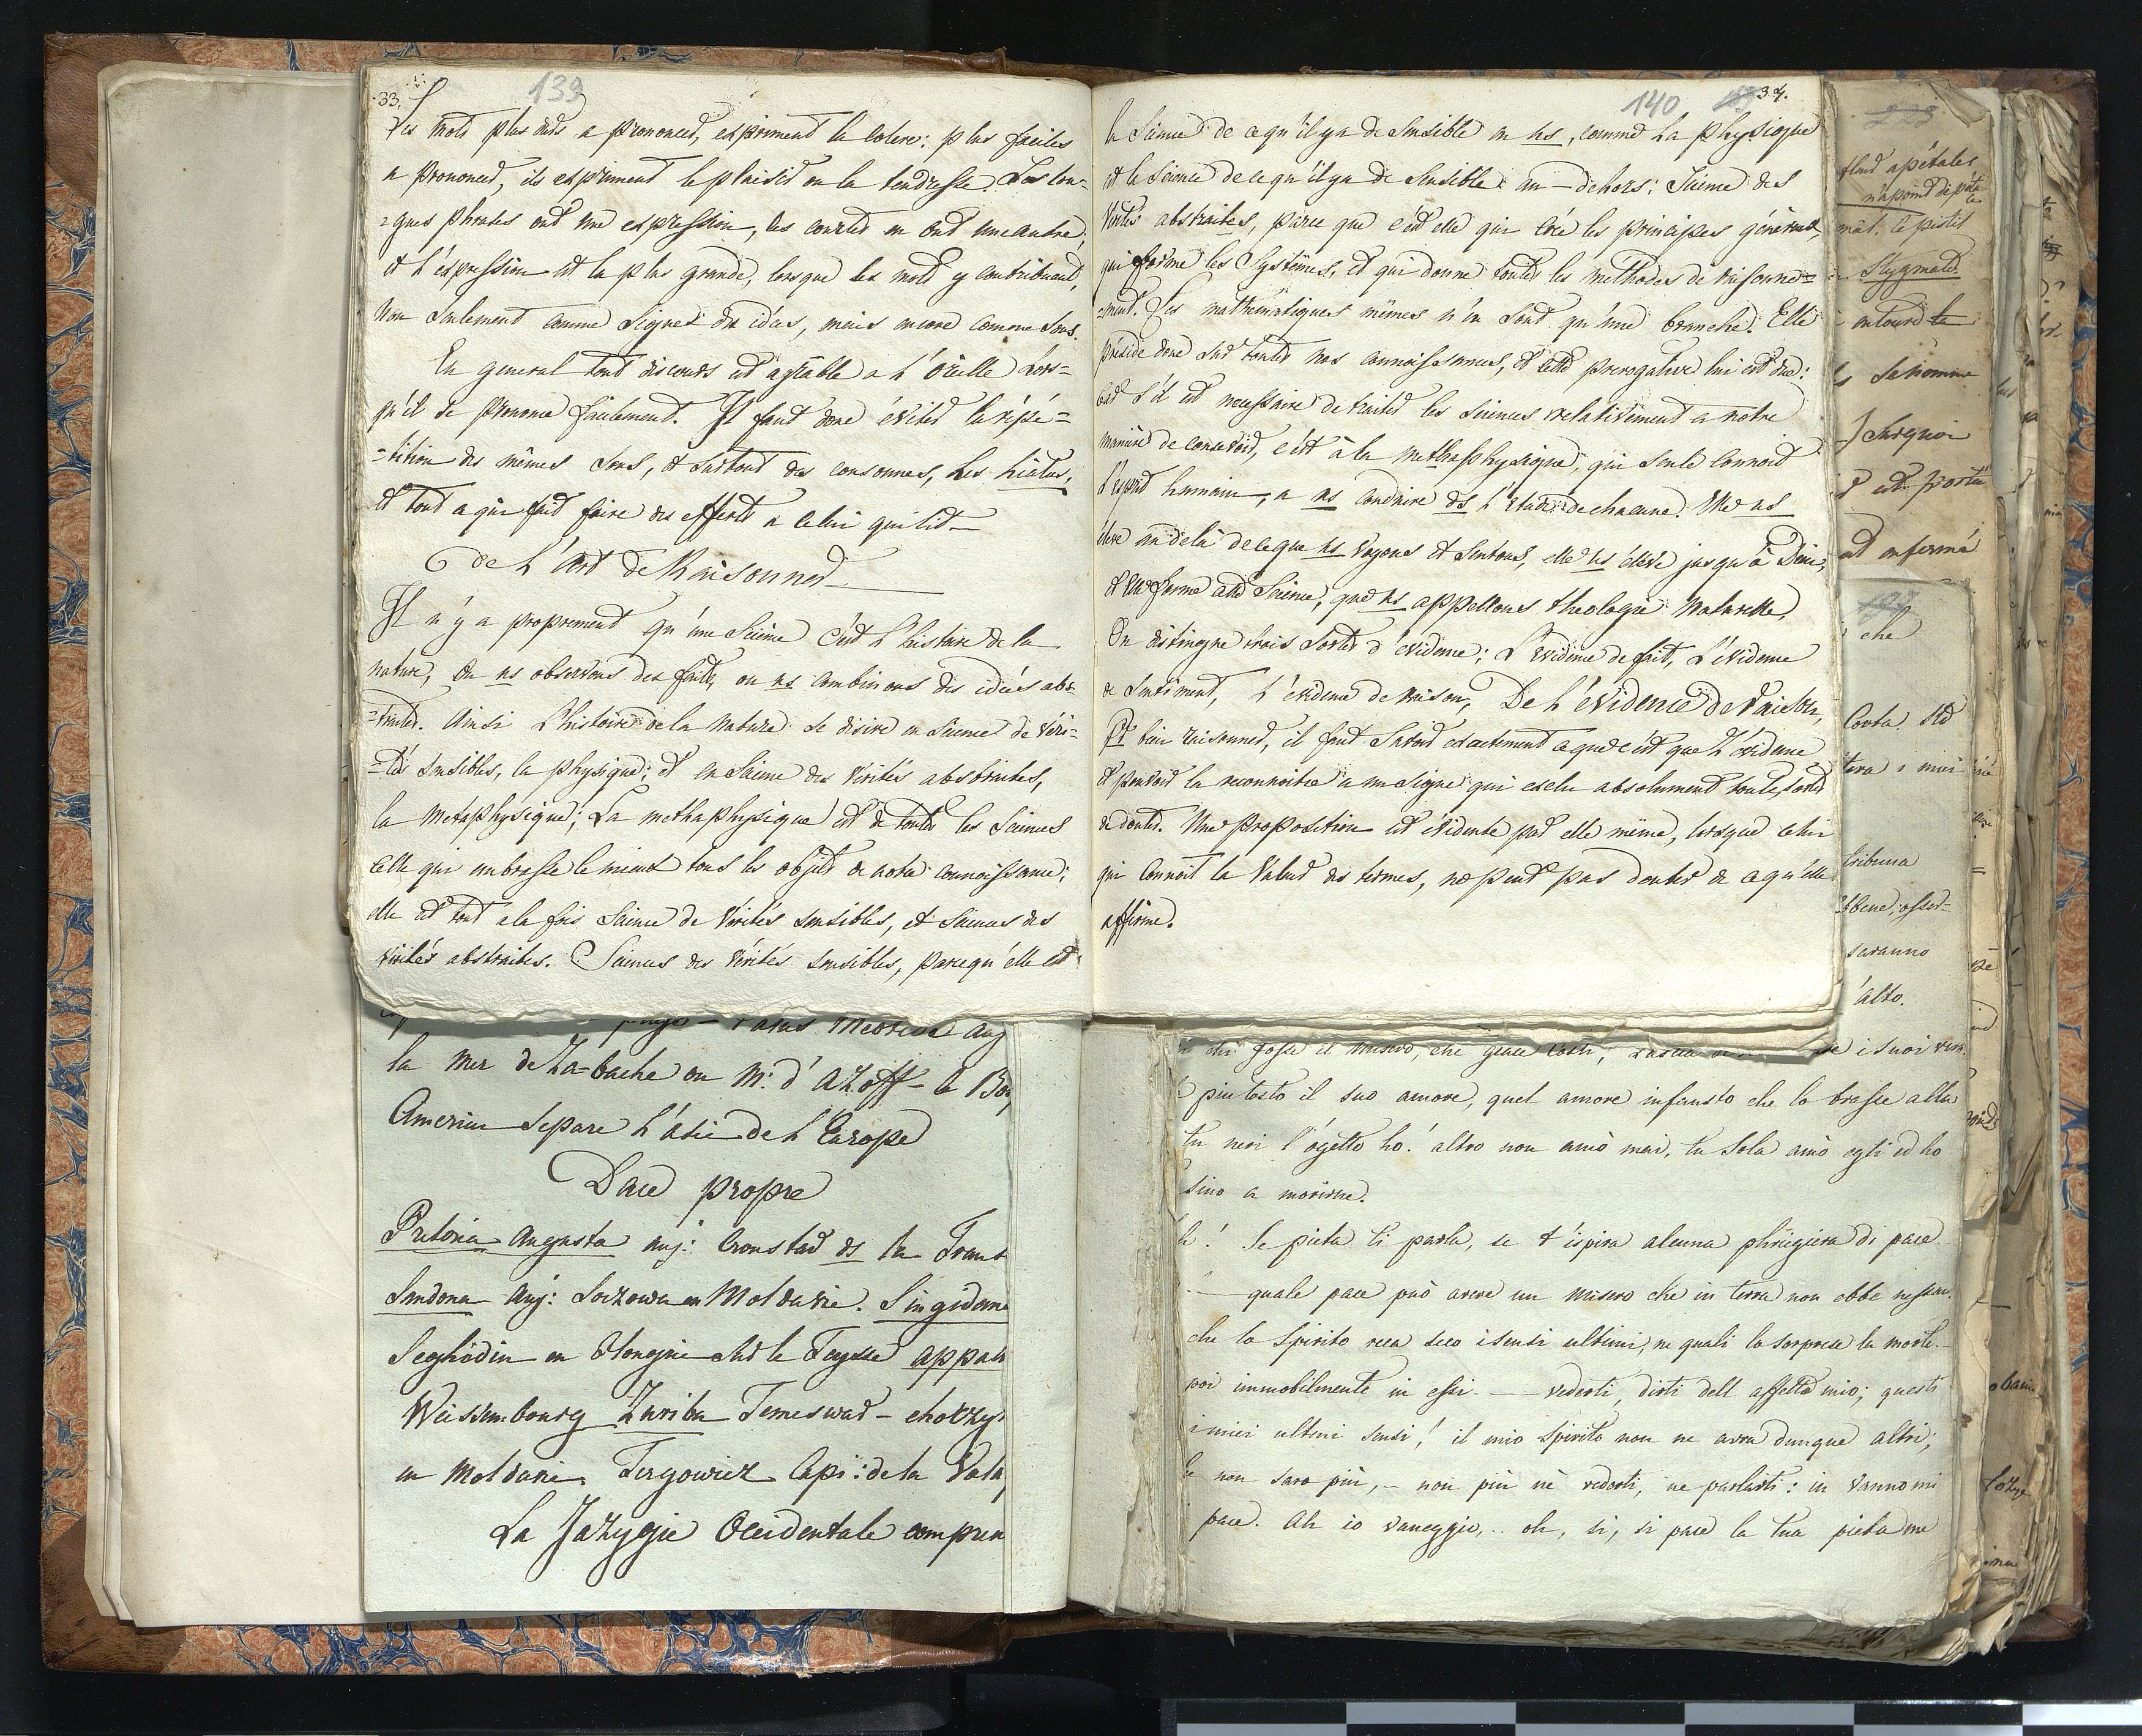 33.
139
Les mots plus rudes a prononcer, expriment la colere: plus faciles
a prononcer, ils expriment le plaisir ou la tendresse. Les lon=
=gues phrases ont une expression, les courtes en ont une autre;
et l'éxpression est la plus grande, lorsque les mots y contribuent,
non seulement comme signes des idées, mais encore comme sons.
En general tout discours est agréable a l'oreille lors=
qu'il se prononce facilement. Il faut donc éviter la répé=
=tition des mêmes sons, et surtout des consonnes, les hiatus,
et tout ce qui fait faire des efforts a celui qui lit—
de l'Art de Raisonner
Il n'y a proprement qu'une science c'est l'histoire de la
nature, ou ns observons des faits, ou ns combinons des idées abs=
=traites. Ainsi l'histoire de la nature se divise en science de véri=
=tés sensibles, la physique; et en science des vérités abstraites,
la Metaphysique; La methaphysique est de toutes les sciences
celle qui embrasse le mieux tous les objets de notre connaissance;
elle est tout a la fois science de vérités sensibles, et sciences des
vérités abstraites. Sciences des vérités sensibles, parcequ'elle est
140
34.
la science de ce qu'il y a de sensible en ns, comme la physique
est la science de ce qu'il y a de sensible au-dehors: Science des
vérités abstraites, parce que c'est elle qui crée les principes généraux,
qui forme les systêmes, et qui donne toutes les methodes de raisonne=
=ment. Les mathématiques mêmes n'en sont qu'une branche. Elle
preside donc sur toutes nos connoissances, et cette prerogative lui est due:
car s'il est necessaire de traiter les sciences relativement a notre
maniere de concevoir, c'est à la methaphysique, qui seule connoit
l'esprit humain, a ns conduire ds l'etude de chacune. Elle ns
éleve au delà de ce que ns voyons et sentons, elle ns éléve jusqu'à Dieu,
et elle forme cette science, que ns appellons theologie naturelle.
On distingue trois sortes d'evidence; L'evidence de fait, L'évidence
de sentiment, l'évidence de raison, De l'évidence de Raison,
Pr bien raisonner, il faut savoir exactement ce que c'est que l'évidence
et pouvoir la reconnoitre a un signe qui exclu absolument toute sorte
de doutes. Une proposition est évidente par elle même, lorsque celui
qui connoit la valeur des termes, ne peut pas douter de ce qu'elle
affirme.
la Mer de Za-bache ou M: d'Azoff - le Bos
Cimerien separe l'asie de l'Europe
Dace propre
Pretoria Augusta auj: Cronstad ds la Trans
Sandona Auj: Soczowa en Moldavie. Singidone
Seghédin en Hongrie sur le Teysse appas
Weissembourg Zuriba Temeswar - chotzy
en Moldavie Tergowiez Capi: de la Vala
La Jazygie Occidentale compren
che fosse il misero, che giace costì,
piu tosto il suo amore, quel amore infausto che lo trasse alla
tu neri l'ogetto ho! altro non amò mai, tu sola amò egli ed ho
sino a morirne.
Se pieta ti parla, se t'ispira alcuna phrigiera di pace
quale pace può avere un misero che in terra non ebbe nessun.
che lo spirito reca seco i sensi ultimi, ne quali lo sorprese la morte.—
poi immobilmente in essi — vederti, dirti dell affetto mio; questi
i miei ultimi sensi! il mio spirito non ne avra dunque altri;
non saro più, – non più nè vederti, ne parlarti: in vanno mi
pace. Ah io vaneggio, .. oh, si, si pace la tua pieta me
apétales
mât. le pistil
Stygmate
entouré
Surquoi
est porté
est enfermé
che
tribuna
saranno
alto.
i suoi